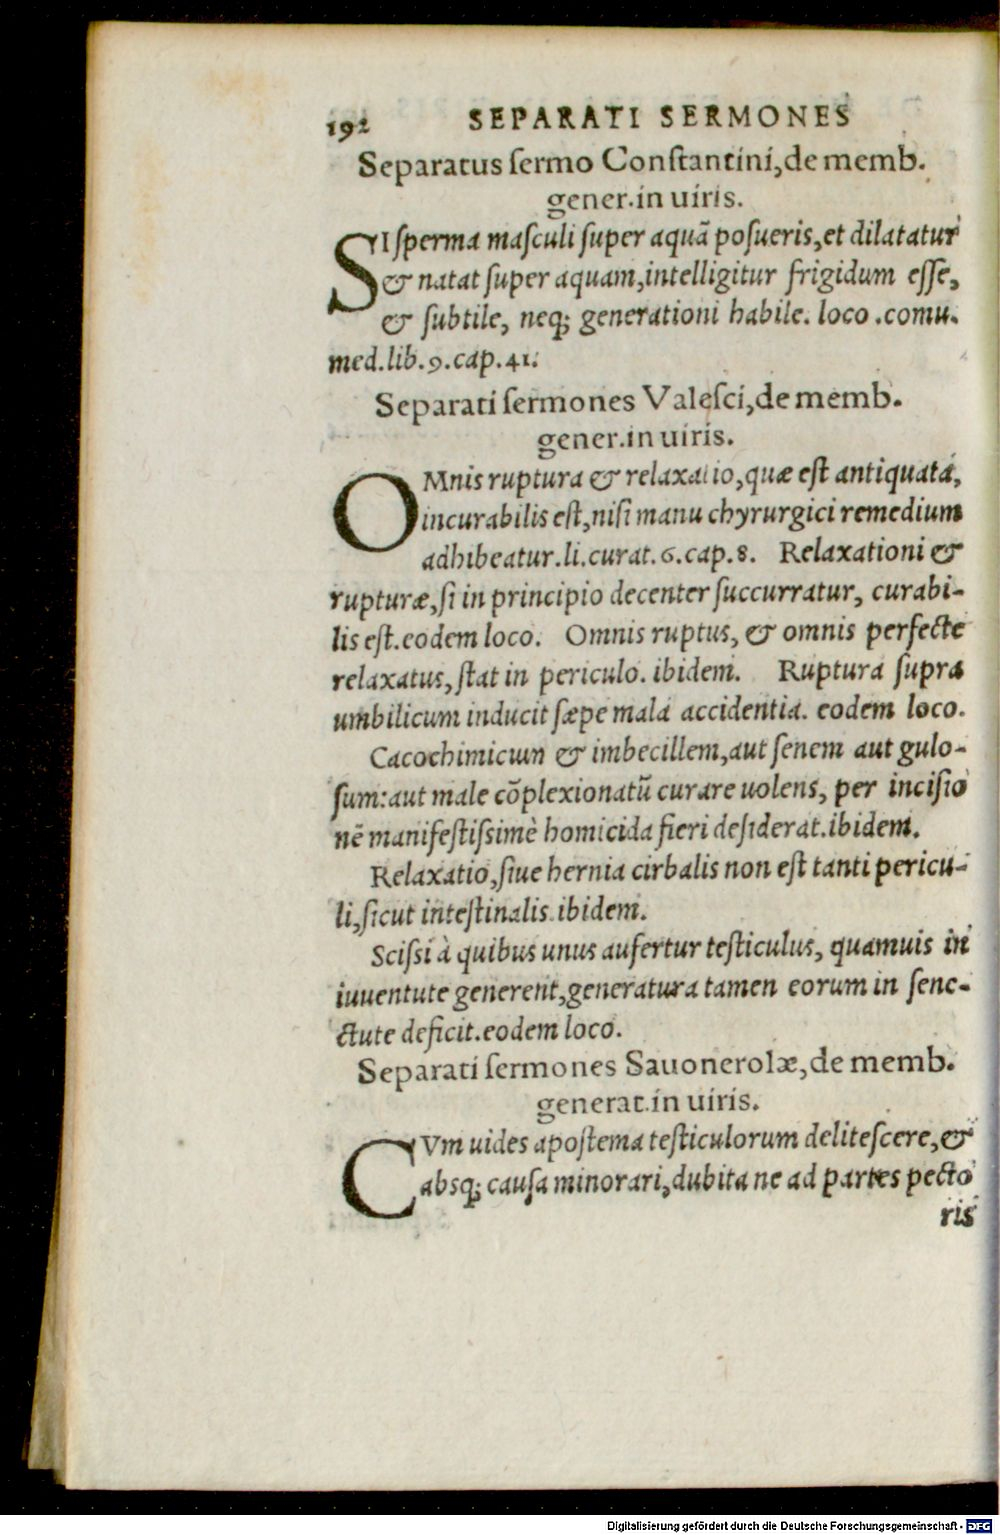 192 SEPARATI SERMONES
Separatus ſermo Conſtantini, de memb.
gener. in uiris.
SI ſperma maſculi ſuper aquã poſueris, et dilatatur
& natat ſuper aquam, intelligitur frigidum eſſe,
& ſubtile, neq; generationi habile. loco .comu.
med.lib.9.cap.41.
Separati ſermones Valeſci, de memb.
gener. in uiris.
OMnis ruptura & relaxatio, quæ eſt antiquata,
incurabilis eſt, niſi manu chyrurgici remedium
adhibeatur. li. curat. 6. cap. 8. Relaxationi &
rupturæ, ſi in principio decenter ſuccurratur, curabi-
lis eſt. eodem loco. Omnis ruptus, & omnis perfecte
relaxatus, ſtat in periculo. ibidem. Ruptura ſupra
umbilicum inducit ſæpe mala accidentia. eodem loco.
Cacochimicum & imbecillem, aut ſenem aut gulo-
ſum: aut male cõplexionatũ curare uolens, per inciſio
nẽ manifeſtiſsimè homicida fieri deſiderat. ibidem.
Relaxatio, ſiue hernia cirbalis non eſt tanti pericu-
li, ſicut inteſtinalis. ibidem.
Sciſsi à quibus unus aufertur teſticulus, quamuis in
iuuentute generent, generatura tamen eorum in ſenc-
ctute deficit. eodem loco.
Separati ſermones Sauonerolæ, de memb.
generat. in uiris.
CVm uides apoſtema teſticulorum deliteſcere, &
absq; cauſa minorari, dubita ne ad partes pecto
ris
Digitalisierung gefördert durch die Deutsche Forschungsgemeinschaft - DFG